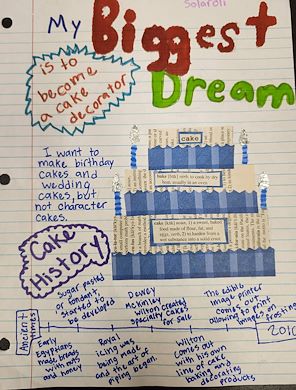 Solaroli
My Biggest
Dream
is to
become
a cake
decorator
I want to
make birthday
cakes and
wedding
cakes, but
not character
cakes.
cake
bake (bāk) verb, to cook by dry
heat, usually in an oven.
cake (kāk) noun, 1) a sweet, baked
food made of flour, fat, and
eggs, verb, 2) to harden from a
wet substance into a solid crust
Cake
History
Sugar paste
or fondant,
started to
be develop
Dewey
McKinley
Wilton created
specialty cakes
for sale
The edible
image printer
comes out
allowing to print
images on frosting
Ancient
times
2010
Early
Egyptians
made breads
with nuts
and honey
Royal
icing was
being made
and the art of
piping began.
Wilton
comes out
with his own
line of cake
baking and
decorating